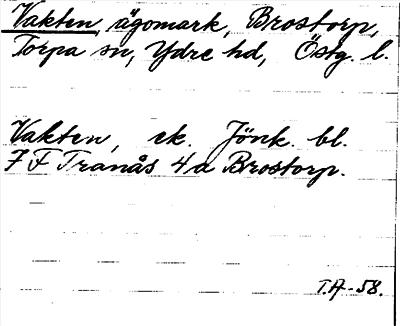 Vakten, ägomark, Brostorp,
Torpa sn, Ydre hd, Östg. l.
Vakten, ek. Jönk. bl.
7 F Tranås 4 a Brostorp.
T.A-58.